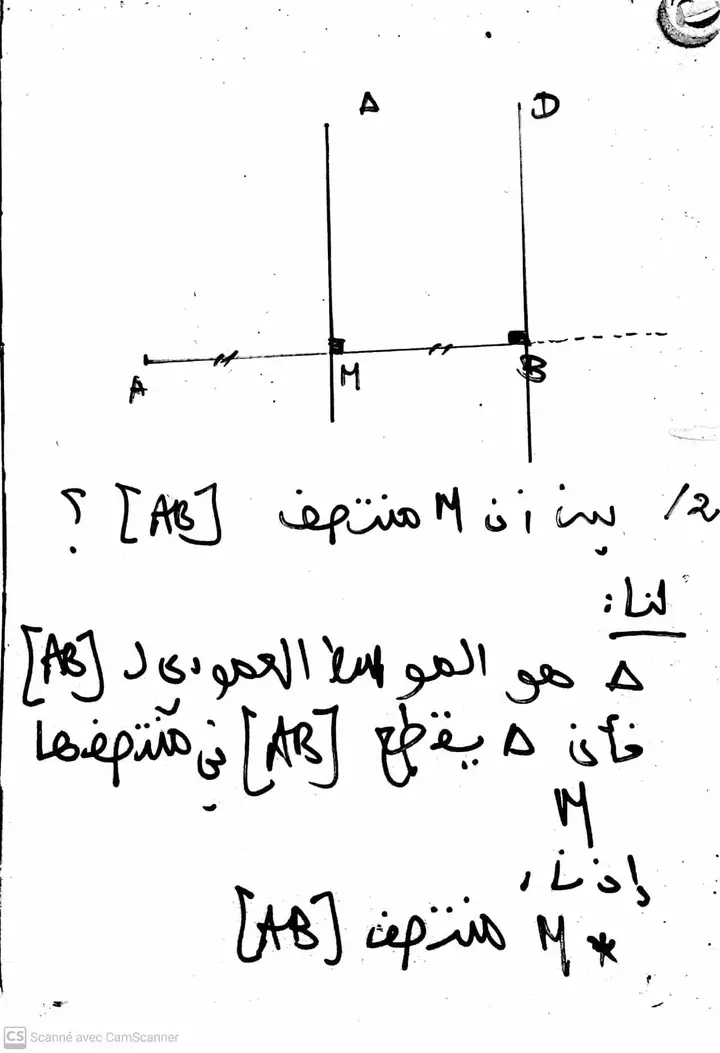 Δ
D
A
M
B
2/ بين أن M منتصف [AB] ؟
لنا:
Δ هو الموسط العمودي لـ [AB]
فأن Δ يقطع [AB] في منتصفها
M
إذن،
* M منتصف [AB]
CS Scanné avec CamScanner